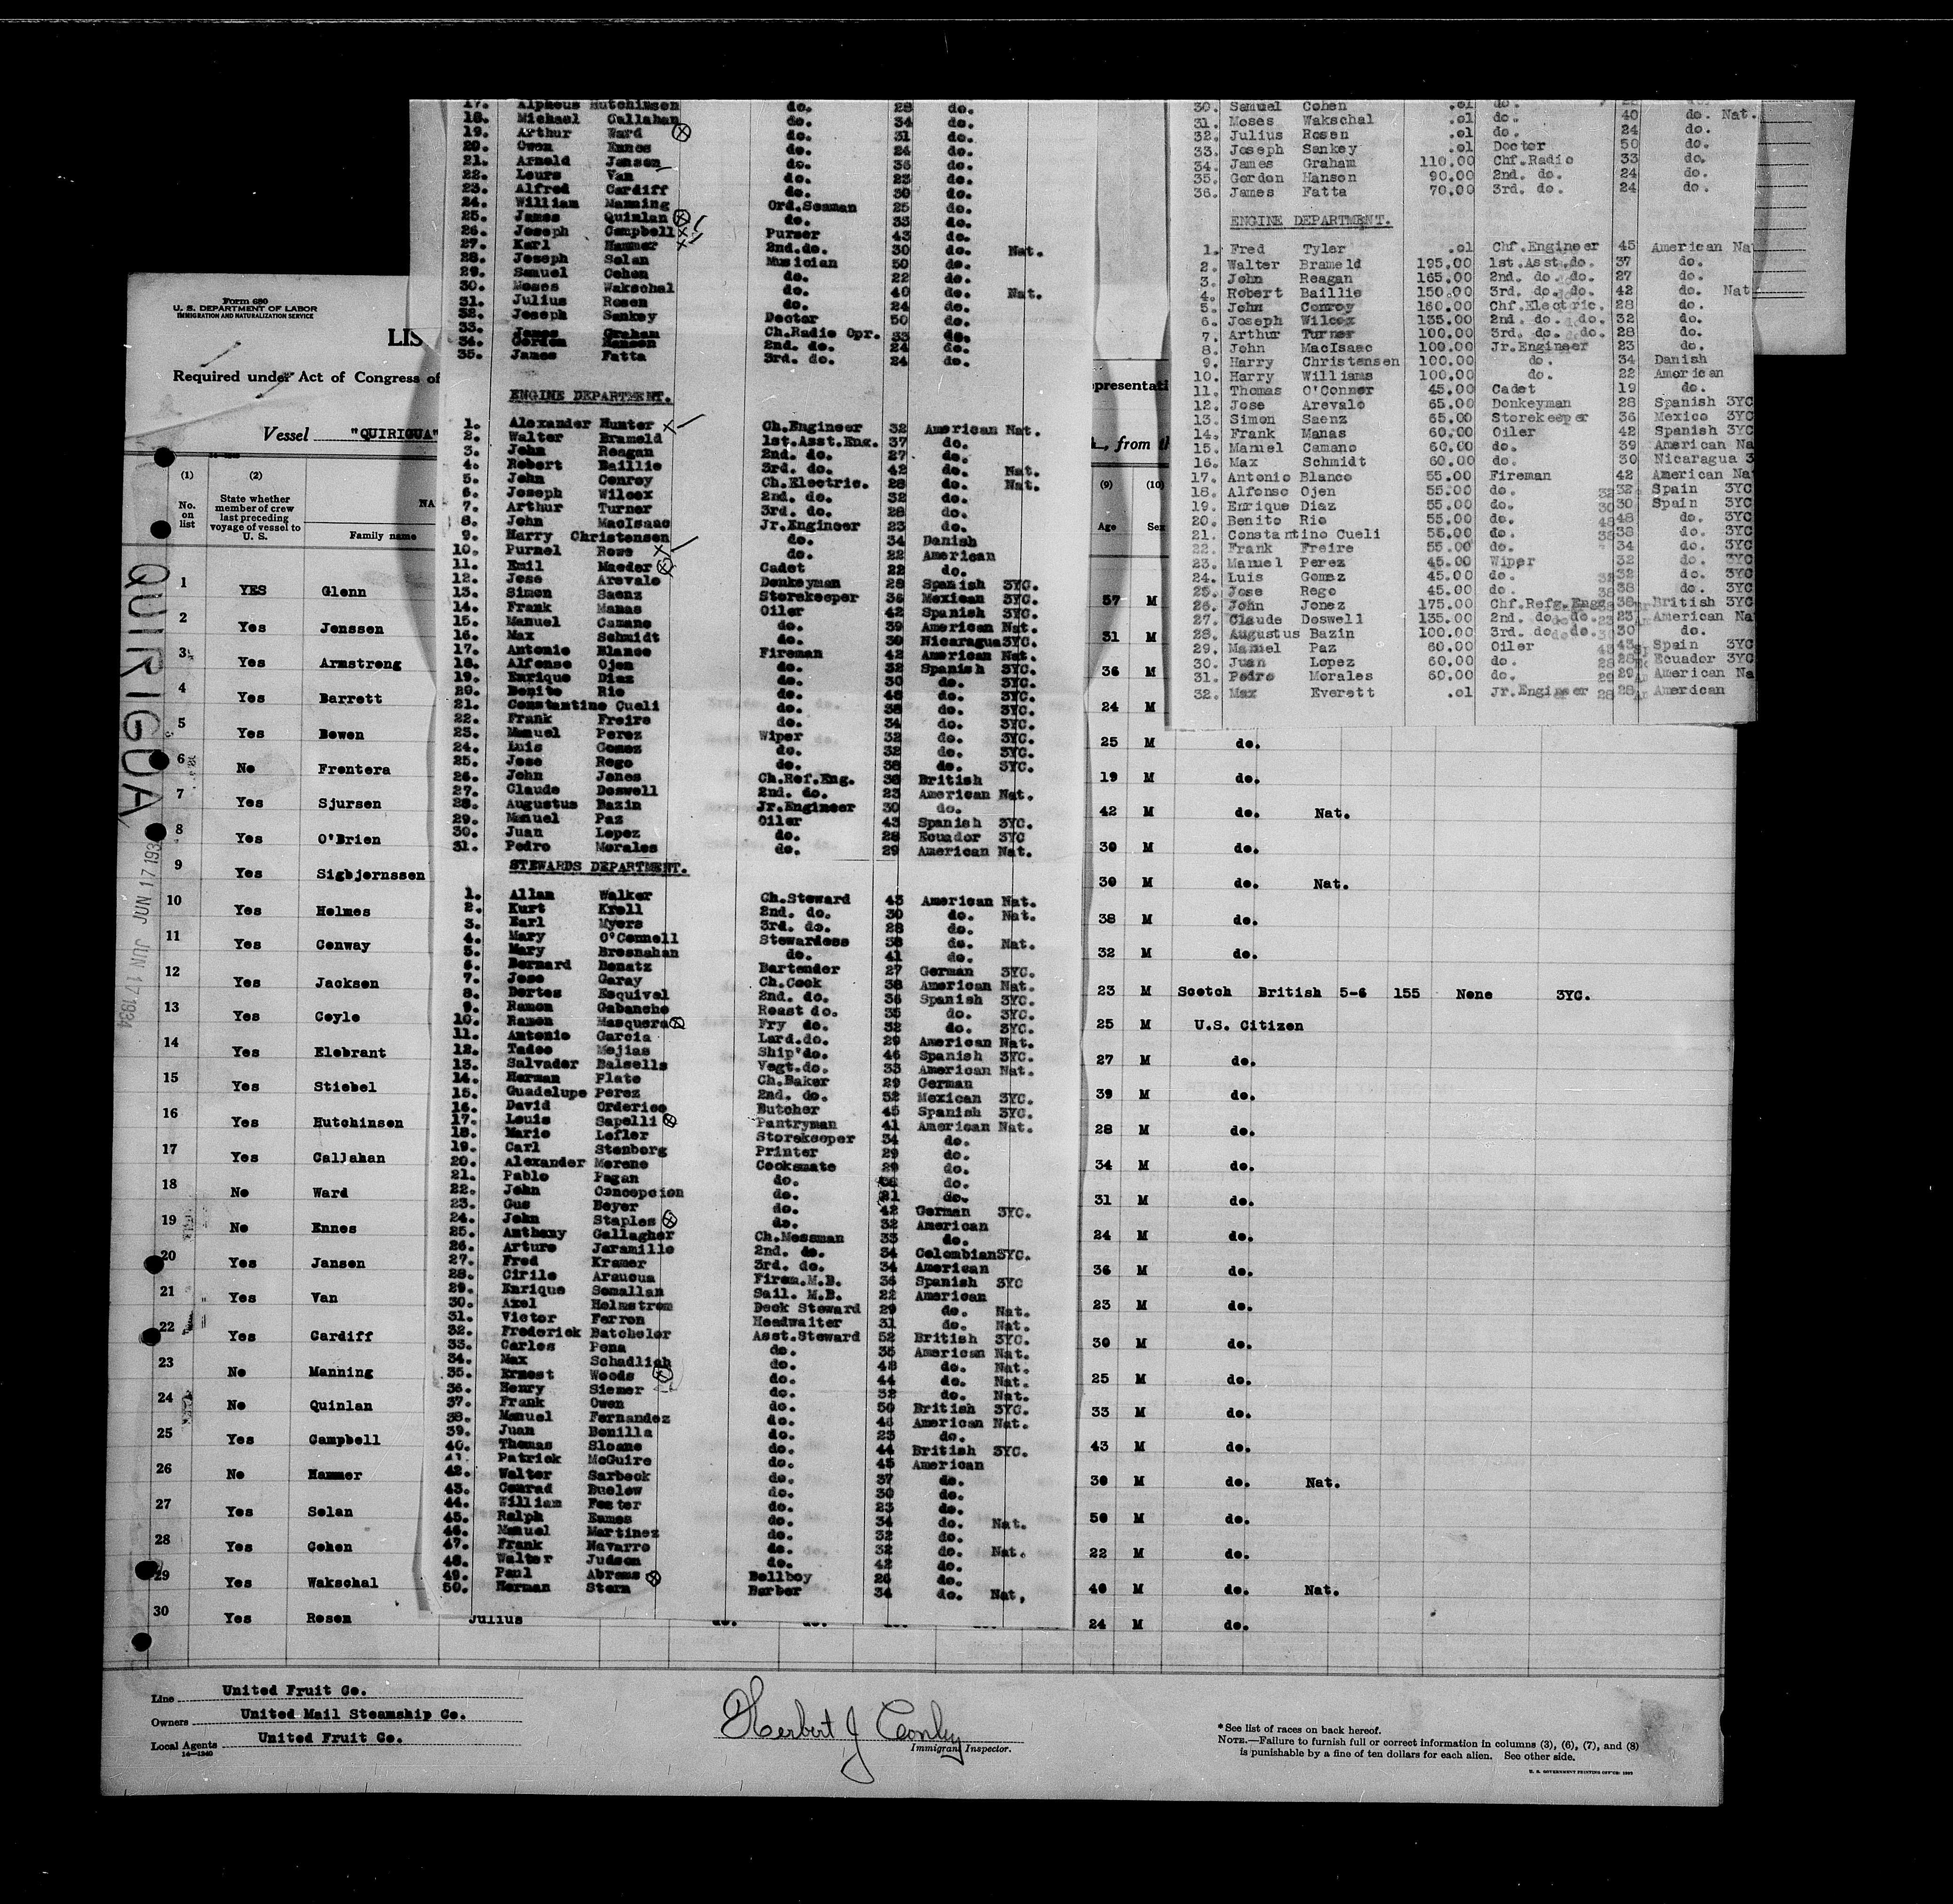 Form 680
U. S. DEPARTMENT OF LABOR
IMMIGRATION AND NATURALIZATION SERVICE
LIS
Required under Act of Congress of
Vessel "QUIRIGUA"
(1) (2)
No. on list
State whether member of crew last preceding voyage of vessel to U. S.
NA
Family name
QUIRIGUA
JUN 17 1934
1 YES Glenn
2 Yes Jenssen
3 Yes Armstrong
4 Yes Barrett
5 Yes Bowen
6 No Frontera
7 Yes Sjursen
8 Yes O'Brien
9 Yes Sigbjornssen
10 Yes Holmes
11 Yes Conway
12 Yes Jackson
13 Yes Coyle
14 Yes Elebrant
15 Yes Stiebel
16 Yes Hutchinson
17 Yes Callahan
18 No Ward
19 No Ennos
20 Yes Jansen
21 Yes Van
22 Yes Cardiff
23 No Manning
24 No Quinlan
25 Yes Campbell
26 No Hammer
27 Yes Solan
28 Yes Cohen
29 Yes Wakschal
30 Yes Rosen Julius
17. Alpheus Hutchinson do. 28 do.
18. Michael Callahan do. 34 do.
19. Arthur Ward do. 31 do.
20. Owen Ennos do. 24 do.
21. Arnold Jansen do. 36 do.
22. Lours Van do. 23 do.
23. Alfred Cardiff do. 30 do.
24. William Manning Ord.Seaman 25 do.
25. James Quinlan do. 33 do.
26. Joseph Campbell Purser 43 do.
27. Karl Hammer 2nd.do. 30 do. Nat.
28. Joseph Solan Musician 50 do.
29. Samuel Cohen do. 22 do.
30. Moses Wakschal do. 40 do. Nat.
31. Julius Rosen do. 24 do.
32. Joseph Sankey Doctor 50 do.
33. James Graham Ch.Radio Opr. 33 do.
34. Gordon Hanson 2nd. do. 24 do.
35. James Fatta 3rd. do. 24 do.
ENGINE DEPARTMENT.
1. Alexander Hunter Ch.Engineer 32 American Nat.
2. Walter Brameld 1st.Asst.Eng. 37 do.
3. John Reagan 2nd. do. 27 do.
4. Robert Baillie 3rd. do. 42 do. Nat.
5. John Conroy Ch.Electric. 28 do. Nat.
6. Joseph Wilcox 2nd. do. 32 do.
7. Arthur Turner 3rd. do. 28 do.
8. John MacIsaac Jr.Engineer 23 do.
9. Harry Christensen do. 34 Danish
10. Purnel Rowe do. 22 American
11. Emil Maeder Cadet 22 do.
12. Jose Arevalo Donkeyman 28 Spanish 3YC.
13. Simon Saenz Storekeeper 36 Mexican 3YC.
14. Frank Manas Oiler 42 Spanish 3YC.
15. Manuel Camano do. 39 American Nat.
16. Max Schmidt do. 30 Nicaragua3YC.
17. Antonio Blanco Fireman 42 American Nat.
18. Alfonso Ojen do. 32 Spanish 3YC.
19. Enrique Diaz do. 30 do. 3YC.
20. Benito Rio do. 48 do. 3YC.
21. Constantino Cueli do. 38 do. 3YC.
22. Frank Freire do. 34 do. 3YC.
23. Manuel Perez Wiper 32 do. 3YC.
24. Luis Gomez do. 32 do. 3YC.
25. Jose Rego do. 38 do. 3YC.
26. John Jones Ch.Ref.Eng. 38 British
27. Claude Doswell 2nd. do. 23 American Nat.
28. Augustus Bazin Jr.Engineer 30 do.
29. Manuel Paz Oiler 43 Spanish 3YC.
30. Juan Lopez do. 28 Ecuador 3YC
31. Pedro Morales do. 29 American Nat.
STEWARDS DEPARTMENT.
1. Allan Walker Ch.Steward 43 American Nat.
2. Kurt Kroll 2nd. do. 30 do. Nat.
3. Earl Myers 3rd. do. 28 do.
4. Mary O'Connell Stewardess 38 do. Nat.
5. Mary Bresnahan do. 41 do.
6. Bernard Benatz Bartender 27 German 3YC.
7. Jose Garay Ch.Cook 38 American Nat.
8. Dortes Esquivel 2nd. do. 36 Spanish 3YC.
9. Ramon Gabancho Roast do. 35 do. 3YC.
10. Ramon Masquera Fry do. 32 do. 3YC.
11. Antonio Garcia Lard.do. 29 American Nat.
12. Tadeo Mejias Ship'do. 46 Spanish 3YC.
13. Salvador Balsells Vegt.do. 33 American Nat.
14. Herman Plate Ch.Baker 29 German
15. Guadelupe Perez 2nd. do. 52 Mexican 3YC.
16. David Orderico Butcher 45 Spanish 3YC.
17. Louis Sapelli Pantryman 41 American Nat.
18. Mario Lefler Storekeeper 34 do.
19. Carl Stenborg Printer 29 do.
20. Alexander Moreno Cooksmate 29 do.
21. Pablo Pagan do. do.
22. John Concepcion do. 21 do.
23. Gus Beyer do. 42 German 3YC.
24. John Staples do. 32 American
25. Anthony Gallagher Ch.Messman 33 do.
26. Arturo Jaramillo 2nd. do. 34 Colombian3YC.
27. Fred Kramer 3rd. do. 34 American
28. Cirilo Araucua Firem.M.B. 36 Spanish 3YC
29. Enrique Semallan Sail. M.B. 22 American
30. Axel Holmstrom Deck Steward 29 do. Nat.
31. Victor Ferron Headwaiter 31 do. Nat.
32. Frederick Batchelor Asst.Steward 52 British 3YC.
33. Carlos Pena do. 35 American Nat.
34. Max Schadlich do. 48 do. Nat.
35. Ernest Woods do. 44 do. Nat.
36. Henry Siemer do. 32 do. Nat.
37. Frank Owen do. 50 British 3YC.
38. Manuel Fernandez do. 43 American Nat.
39. Juan Bonilla do. 23 do.
40. Thomas Sloane do. 44 British 3YC.
41. Patrick McGuire do. 45 American
42. Walter Sarbeck do. 37 do.
43. Conrad Buelow do. 30 do.
44. William Foster do. 23 do.
45. Ralph Eames do. 34 do. Nat.
46. Manuel Martinez do. 32 do.
47. Frank Navarro do. 32 do. Nat.
48. Walter Judson do. 42 do.
49. Paul Abrams Bellboy 26 do.
50. Herman Stern Barber 34 do. Nat.
30. Samuel Cohen .01 do. 22
31. Moses Wakschal .01 do. 40 do. Nat.
32. Julius Rosen .01 do. 24 do.
33. Joseph Sankey .01 Doctor 50 do.
34. James Graham 110.00 Chf.Radio 33 do.
35. Gordon Hanson 90.00 2nd. do. 24 do.
36. James Fatta 70.00 3rd. do. 24 do.
ENGINE DEPARTMENT.
1. Fred Tyler .01 Chf.Engineer 45 American Na
2. Walter Brameld 195.00 1st.Asst.do. 37 do.
3. John Reagan 165.00 2nd. do. do. 27 do.
4. Robert Baillie 150.00 3rd. do. do. 42 do. Nat
5. John Conroy 160.00 Chf.Electric. 28 do.
6. Joseph Wilcox 135.00 2nd. do. do. 32 do.
7. Arthur Turner 100.00 3rd. do. do. 28 do.
8. John MacIsaac 100.00 Jr.Engineer 23 do.
9. Harry Christensen 100.00 do. 34 Danish
10. Harry Williams 100.00 do. 22 American
11. Thomas O'Connor 45.00 Cadet 19 do.
12. Jose Arevalo 65.00 Donkeyman 28 Spanish 3YC
13. Simon Saenz 65.00 Storekeeper 36 Mexico 3YC
14. Frank Manas 60.00 Oiler 42 Spanish 3YC
15. Manuel Camano 60.00 do. 39 American Na
16. Max Schmidt 60.00 do. 30 Nicaragua 3
17. Antonio Blanco 55.00 Fireman 42 American Na
18. Alfonso Ojen 55.00 do. 32 Spain 3YC
19. Enrique Diaz 55.00 do. 30 Spain 3YC
20. Benito Rio 55.00 do. 48 do. 3YC
21. Constantino Cueli 55.00 do. 38 do. 3YC
22. Frank Freire 55.00 do. 34 do. 3YC
23. Manuel Perez 45.00 Wiper 32 do. 3YC
24. Luis Gomez 45.00 do. 32 do. 3YC
25. Jose Rego 45.00 do. 38 do. 3YC
26. John Jonez 175.00 Chf.Refg.Engg 38 British 3YC
27. Claude Doswell 135.00 2nd. do. do. 23 American Na
28. Augustus Bazin 100.00 3rd. do. do. 30 do.
29. Manuel Paz 60.00 Oiler 43 Spain 3YC
30. Juan Lopez 60.00 do. 28 Ecuador 3YC
31. Pedro Morales 60.00 do. 29 American Na
32. Max Everett .01 Jr.Engineer 28 American
epresentati
, from th
(9) (10)
Age Sex
57 M
31 M
36 M
24 M
25 M do.
19 M do.
42 M do. Nat.
30 M do.
30 M do. Nat.
38 M do.
32 M do.
23 M Scotch British 5-6 155 None 3YC.
25 M U.S. Citizen
27 M do.
39 M do.
28 M do.
34 M do.
31 M do.
24 M do.
36 M do.
23 M do.
30 M do.
25 M do.
33 M do.
43 M do.
30 M do. Nat.
50 M do.
22 M do.
40 M do. Nat.
24 M do.
Line United Fruit Co.
Owners United Mail Steamship Co.
Local Agents United Fruit Co.
14—1240
Herbert J Conley
Immigrant Inspector.
*See list of races on back hereof.
NOTE.—Failure to furnish full or correct information in columns (3), (6), (7), and (8)
is punishable by a fine of ten dollars for each alien. See other side.
U. S. GOVERNMENT PRINTING OFFICE: 1933